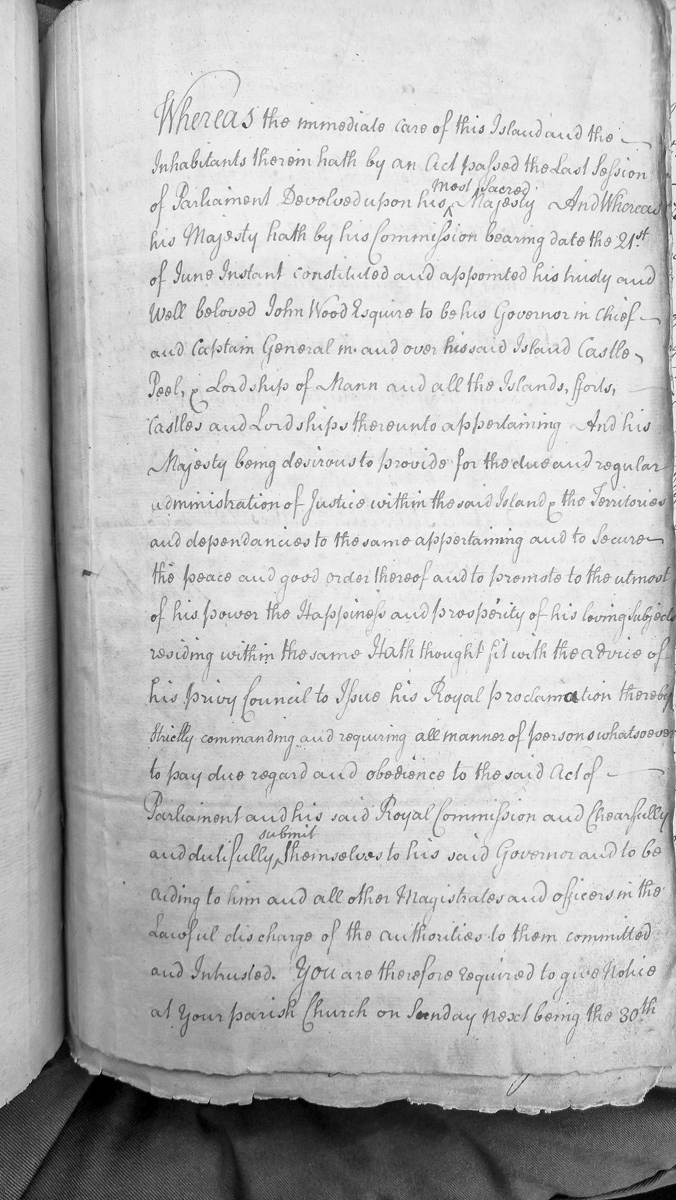 Whereas the immediate care of this Island and the
Inhabitants therein hath by an Act passed the Last Session
of Parliament Devolved upon his ^ most Sacred Majesty And Whereas
his Majesty hath by his Commission bearing date the 21st
of June Instant constituted and appointed his trusty and
Well beloved John Wood Esquire to be his Governor in Chief
and Captain General in and over his said Island Castle
Peel, & Lordship of Mann and all the Islands, fforts,
Castles and Lordships thereunto appertaining And his
Majesty being desirous to provide for the due and regular
administration of Justice within the said Island & the Territories
and dependancies to the same appertaining and to Secure
the peace and good order thereof and to promote to the utmost
of his power the Happiness and prosperity of his loving Subjects
residing within the same Hath thought fit with the advice of
his privy Council to Issue his Royal proclamation thereby
Strictly commanding and requiring all manner of persons whatsoever
to pay due regard and obedience to the said Act of
Parliament and his said Royal Commission and Chearfully
and dutifully ^ submit themselves to his said Governor and to be
aiding to him and all other Magistrates and officers in the
Lawful discharge of the authorities to them committed
and Intrusted. You are therefore required to give Notice
at Your parish Church on Sunday next being the 30th